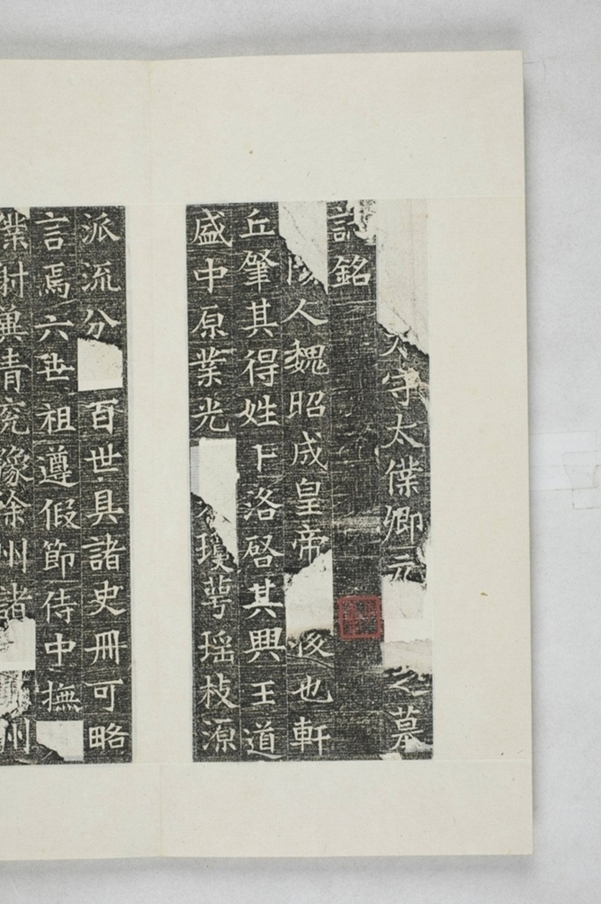 太守太僕卿元之墓
誌銘
陽人魏昭成皇帝後也軒
丘肇其得姓卞洛啓其興王道
盛中原業光瓊萼瑶枝源
派流分百世具諸史冊可略
言焉六世祖遵假節侍中撫
業射冀青兖豫徐州諸州